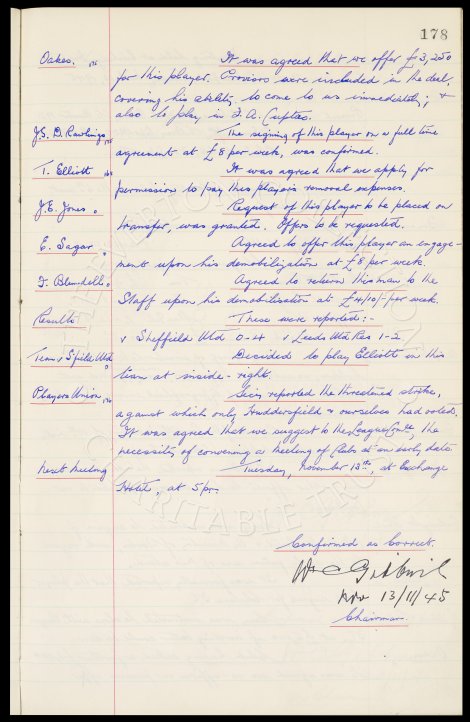 178
Oakes. It was agreed that we offer £3,250
for this player. Provisors were included in the deal,
covering his ability to come to us immediately; &
also to play in F.A. Cupties.
J.S. D. Rawlings The signing of this player on a full time
agreement at £8 per week, was confirmed.
T. Elliott It was agreed that we apply for
permission to pay this player's removal expenses.
J.E. Jones. Request of this player to be placed on
transfer, was granted. Offers to be requested.
E. Sagar Agreed to offer this player an engage-
ment upon his demobilization at £8 per week.
J. Blundell Agreed to return this man to the
Staff upon his demobilisation at £4/10/- per week.
Results These were reported:-
v Sheffield Utd 0-4 v Leeds Utd Res 1-2
Team v S'field Utd Decided to play Elliott in this
team at inside-right.
Players Union Secy reported the threatened strike,
against which only Huddersfield & ourselves had voted.
It was agreed that we suggest to the League Cmtee, the
necessity of convening a meeting of Clubs at an early date.
Next meeting Tuesday, November 13th, at Exchange
Hotel, at 5 pm
Confirmed as Correct.
Wm C
Nov 13/11/45
Chairman.
THE EVERTON
CHARITABLE TRUST